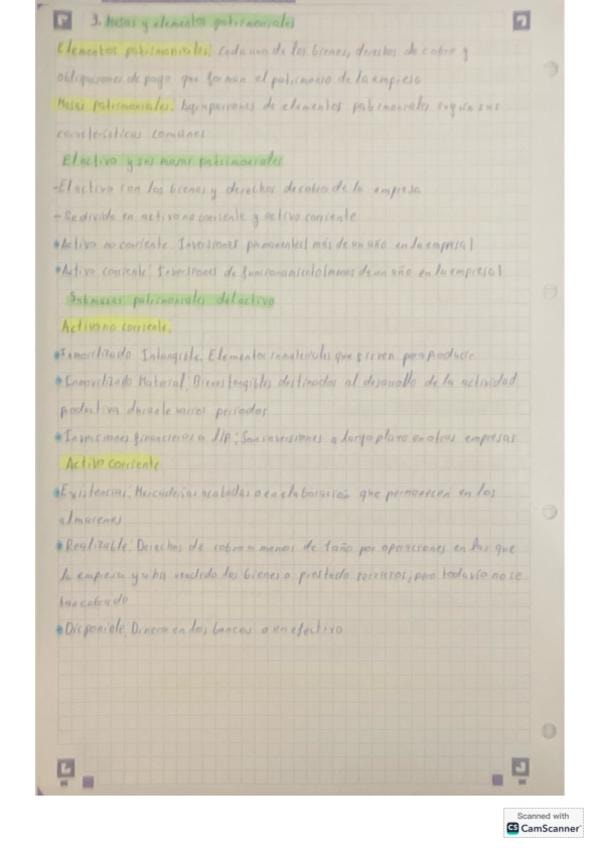 3. Masas y elementos patrimoniales
Elementos patrimoniales: Cada uno de los bienes, derechos de cobro y
obligaciones de pago que forman el patrimonio de la empresa
Masas patrimoniales: Agrupaciones de elementos patrimoniales según sus
características comunes
El activo y sus masas patrimoniales
-El activo son los bienes y derechos de cobro de la empresa
- Se divide en activo no corriente y activo corriente
•Activo no corriente: Inversiones permanentes( más de un año en la empresa)
•Activo corriente: Inversiones de funcionamiento(menos de un año en la empresa)
Submasas patrimoniales del activo
Activo no corriente.
•Inmovilizado Intangible: Elementos inmateriales que sirven para producir
•Inmovilizado Material: Bienes tangibles destinados al desarrollo de la actividad
productiva durante varios periodos
•Inversiones financieras a l/p: Son inversiones a largo plazo en otras empresas
Activo corriente
•Existencias: Mercaderías acabadas o en elaboración que permanecen en los
almacenes
•Realizable: Derechos de cobro a menos de 1 año por operaciones en las que
la empresa ya ha vendido los bienes o prestado servicios, pero todavía no se
han cobrado
•Disponible: Dinero en los bancos o en efectivo
Scanned with
CS CamScanner